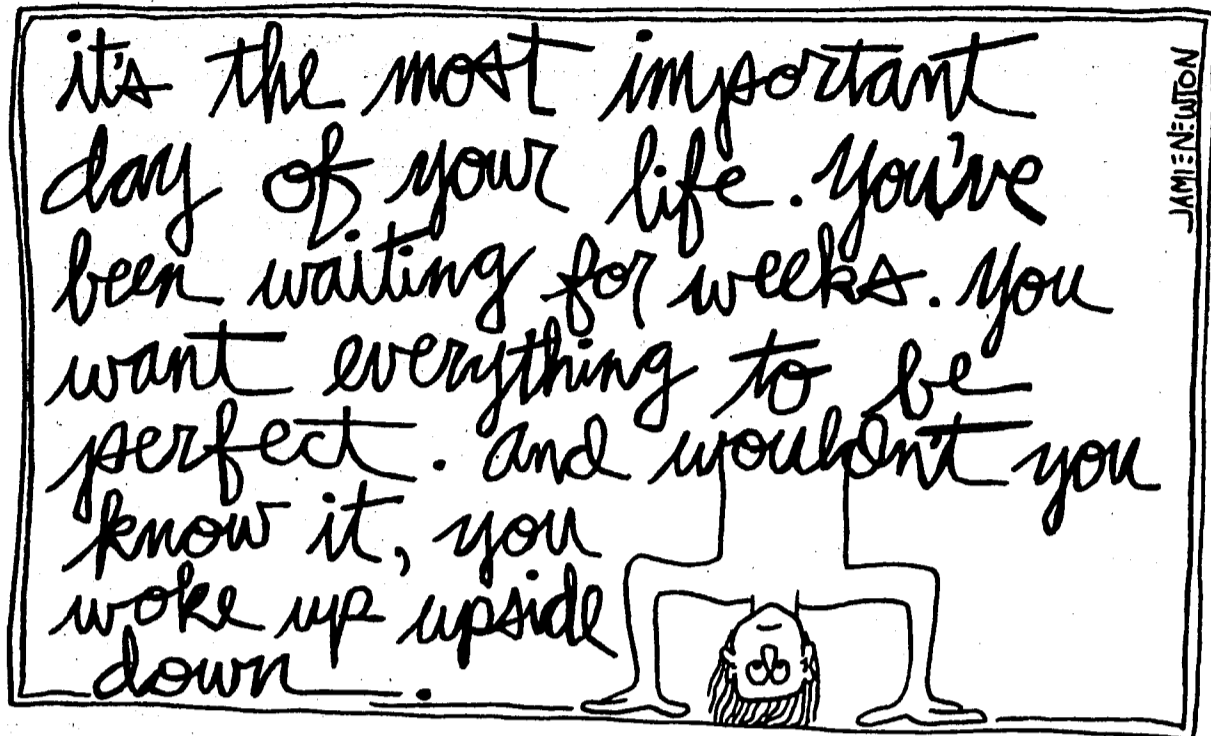 it's the most important
day of your life. you've
been waiting for weeks. you
want everything to be
perfect. and wouldn't you
know it, you
woke up upside
down.
JAMIE NEWTON